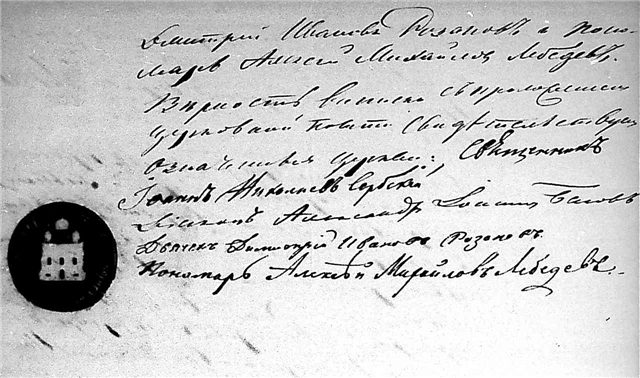 Дмитрий Ивановъ Розановъ и поно-
марь Алексей Михайловъ Лебедевъ.
Верность выписки съ
церковной свидетельствуемъ
означенныя церкви: Священникъ
Іоаннъ Николаевъ Сербскій
Діаконъ Александръ Іоанновъ
Дьячекъ Димитрій Ивановъ Розановъ.
Пономарь Алексѣй Михайловъ Лебедевъ.